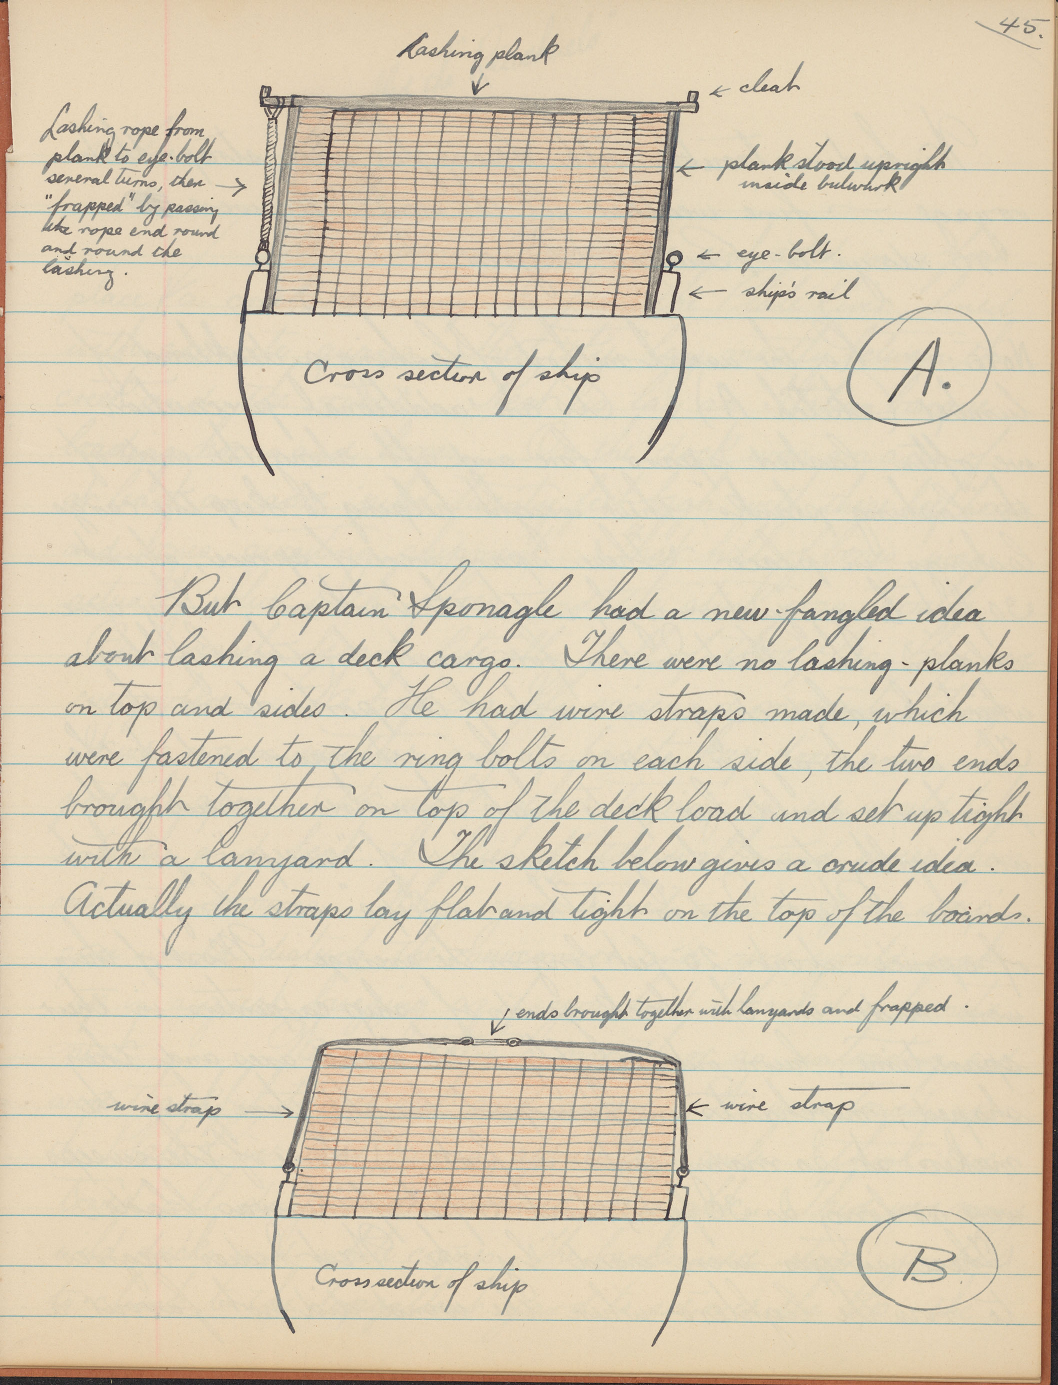 45.
Lashing plank
cleat
Lashing rope from
plank to eye-bolt
several turns, then
"frapped" by passing
the rope end round
and round the
lashing.
plank stood upright
inside bulwark
eye-bolt.
ship's rail
A.
Cross section of ship
But Captain Sponagle had a new-fangled idea
about lashing a deck cargo. There were no lashing-planks
on top and sides. He had wire straps made, which
were fastened to the ring bolts on each side, the two ends
brought together on top of the deck load and set up tight
with a lanyard. The sketch below gives a crude idea.
Actually the straps lay flat and tight on the top of the boards.
ends brought together with lanyards and frapped.
wire strap
wire strap
B
Cross section of ship